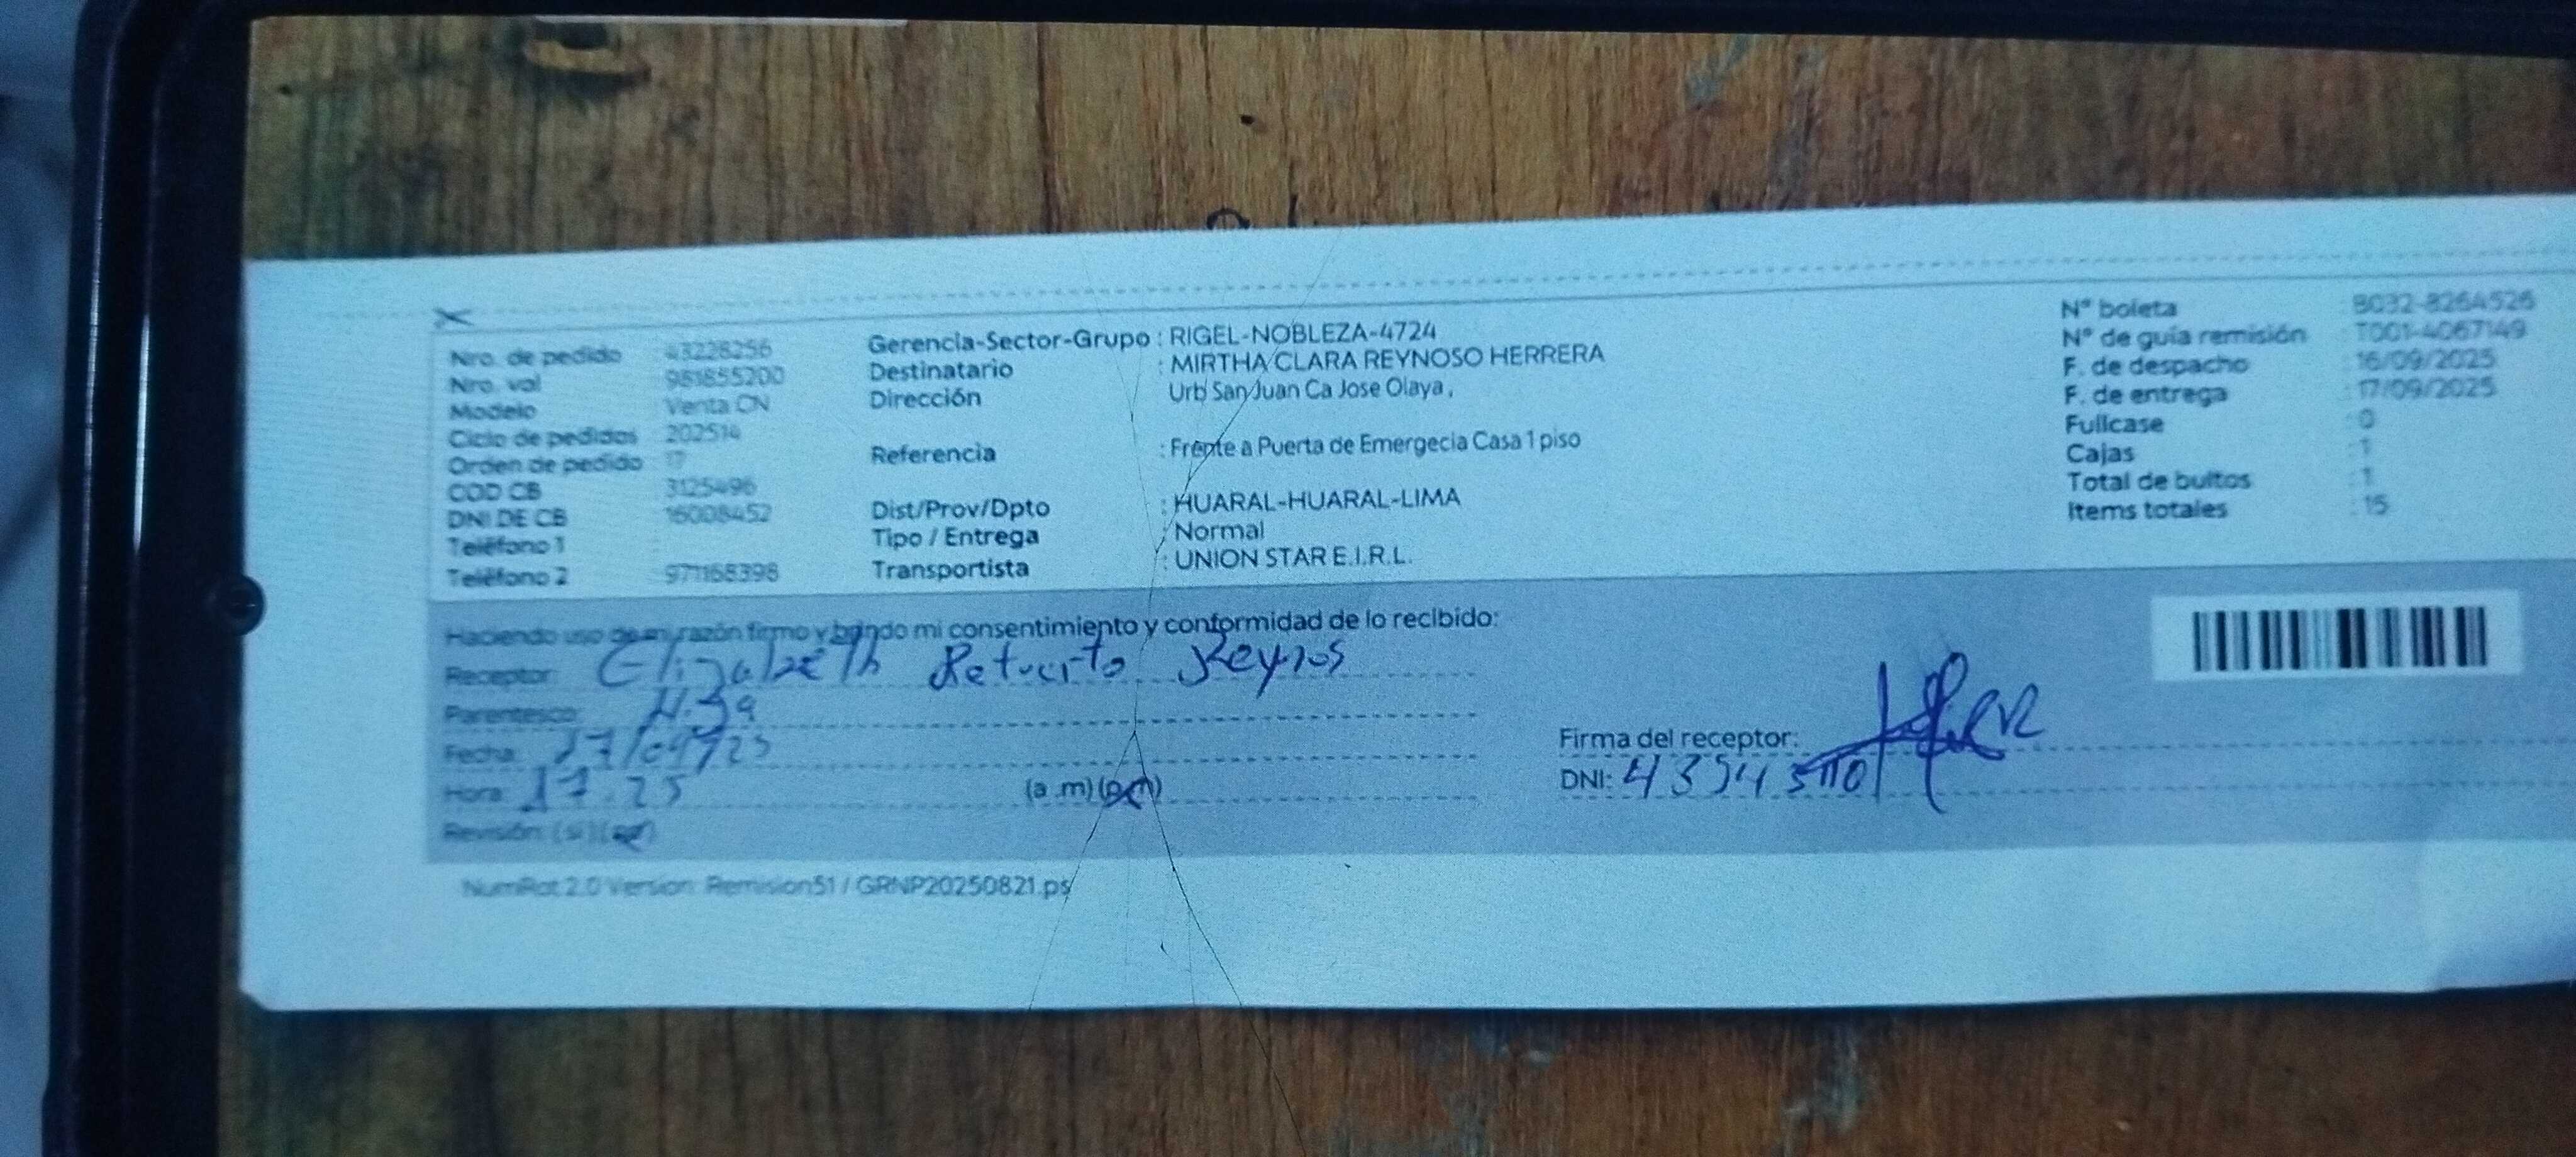 Nro. de pedido 43228256
Nro. val 981855200
Modelo Venta CN
Ciclo de pedidos 202514
Orden de pedido 17
COD CB 3125496
DNI DE CB 16008452
Teléfono 1
Teléfono 2 971168398
Gerencia-Sector-Grupo : RIGEL-NOBLEZA-4724
Destinatario : MIRTHA CLARA REYNOSO HERRERA
Dirección Urb San Juan Ca Jose Olaya ,
Referencia : Frente a Puerta de Emergecia Casa 1 piso
Dist/Prov/Dpto : HUARAL-HUARAL-LIMA
Tipo / Entrega : Normal
Transportista : UNION STAR E.I.R.L.
N° boleta B032-8264526
N° de guía remisión T001-4067149
F. de despacho 16/09/2025
F. de entrega 17/09/2025
Fullcase : 0
Cajas : 1
Total de bultos : 1
Items totales : 15
Haciendo uso de mi razón firmo y brindo mi consentimiento y conformidad de lo recibido:
Receptor: Elizabeth Retuerto Reynos
Parentesco: Hija
Fecha: 17/09/25
Hora: 17:25 (a .m) (p.m)
Revisión: (si) (no)
Firma del receptor:
DNI:
NumRot 2.0 Version: Remision51 / GRNP20250821.ps